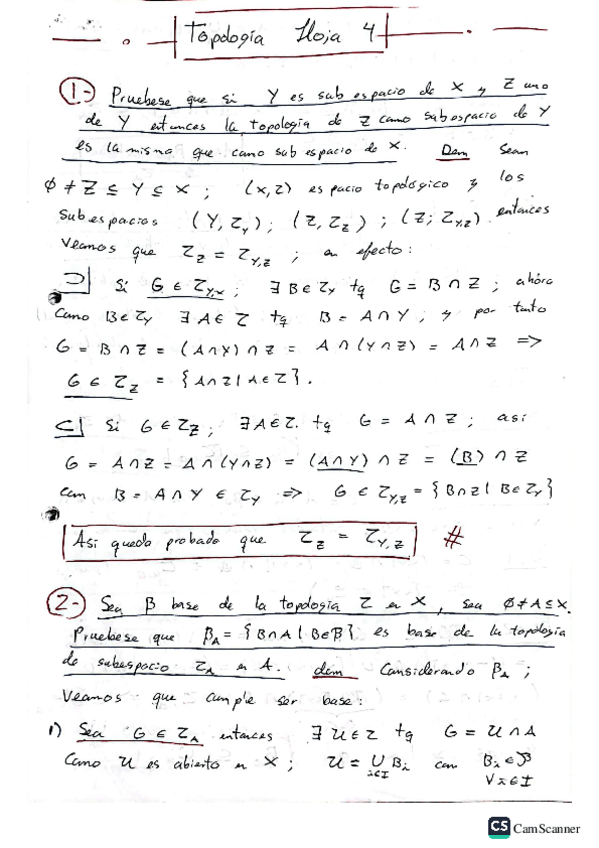 Topología Hoja 4
1- Pruebese que si Y es subespacio de X y Z uno
de Y entonces la topología de Z como subespacio de Y
es la misma que como subespacio de X. Dem Sean
∅ ≠ Z ⊆ Y ⊆ X ; (X,τ) espacio topológico y los
subespacios (Y, τ_Y) ; (Z, τ_Z) ; (Z; τ_Y,Z) entonces
veamos que τ_Z = τ_Y,Z ; en efecto:
⊃| Si G ∈ τ_Y,x ; ∃ B ∈ τ_Y tq G = B ∩ Z ; ahora
como B ∈ τ_Y ∃ A ∈ τ tq B = A ∩ Y ; y por tanto
G = B ∩ Z = (A ∩ Y) ∩ Z = A ∩ (Y ∩ Z) = A ∩ Z =>
G ∈ τ_Z = {A ∩ Z | A ∈ τ}.
⊂| Si G ∈ τ_Z ; ∃ A ∈ τ. tq G = A ∩ Z ; así
G = A ∩ Z = A ∩ (Y ∩ Z) = (A ∩ Y) ∩ Z = (B) ∩ Z
con B = A ∩ Y ∈ τ_Y => G ∈ τ_Y,Z = {B ∩ Z | B ∈ τ_Y}
Así queda probado que τ_Z = τ_Y,Z #
2- Sea β base de la topología τ en X, sea ∅ ≠ A ⊆ X.
Pruebese que β_A = {B ∩ A | B ∈ β} es base de la topología
de subespacio τ_A en A. dem Considerando β_A ;
veamos que cumple ser base:
1) Sea G ∈ τ_A entonces ∃ U ∈ τ tq G = U ∩ A
Como U es abierto en X ; U = ∪_{i∈I} B_i con B_i ∈ β
∀ i ∈ I
CS CamScanner